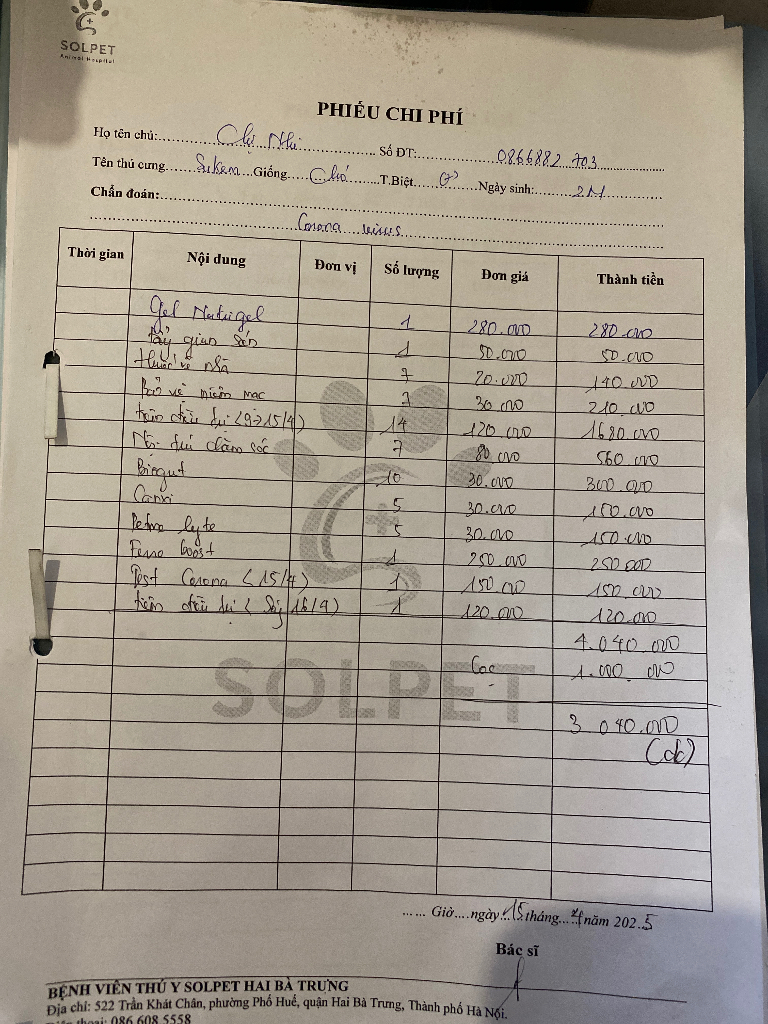 SOLPET
Animal Hospital
PHIẾU CHI PHÍ
Họ tên chủ: Chị Nhi Số ĐT: 0866882 703
Tên thú cưng Giống Chó T.Biệt ♂ Ngày sinh: 2M
Chẩn đoán:
Corona virus
Thời gian Nội dung Đơn vị Số lượng Đơn giá Thành tiền
Gel Nutrigel 1 280.000 280.000
tẩy giun sán 1 50.000 50.000
thuốc về nhà 7 20.000 140 000
Bảo vệ niêm mạc 7 30 000 210.000
tiêm điều trị (9->15/4) 14 120 000 1680.000
Nội trú chăm sóc 7 80 000 560 000
Biogut 10 30.000 300 000
Canxi 5 30.000 150.000
lyte 5 30.000 150.000
Ferro boost 1 250.000 250 000
Test Corona (15/4) 1 150.000 150.000
tiêm điều trị (Sáng 16/4) 1 120.000 120.000
4.040 000
Cọc 1.000.000
3 040.000
(ck)
SOLPET
...... Giờ....ngày 15 tháng 4 năm 2025
Bác sĩ
BỆNH VIÊN THÚ Y SOLPET HAI BÀ TRƯNG
Địa chỉ: 522 Trần Khát Chân, phường Phố Huế, quận Hai Bà Trưng, Thành phố Hà Nội.
thoại: 086 608 5558